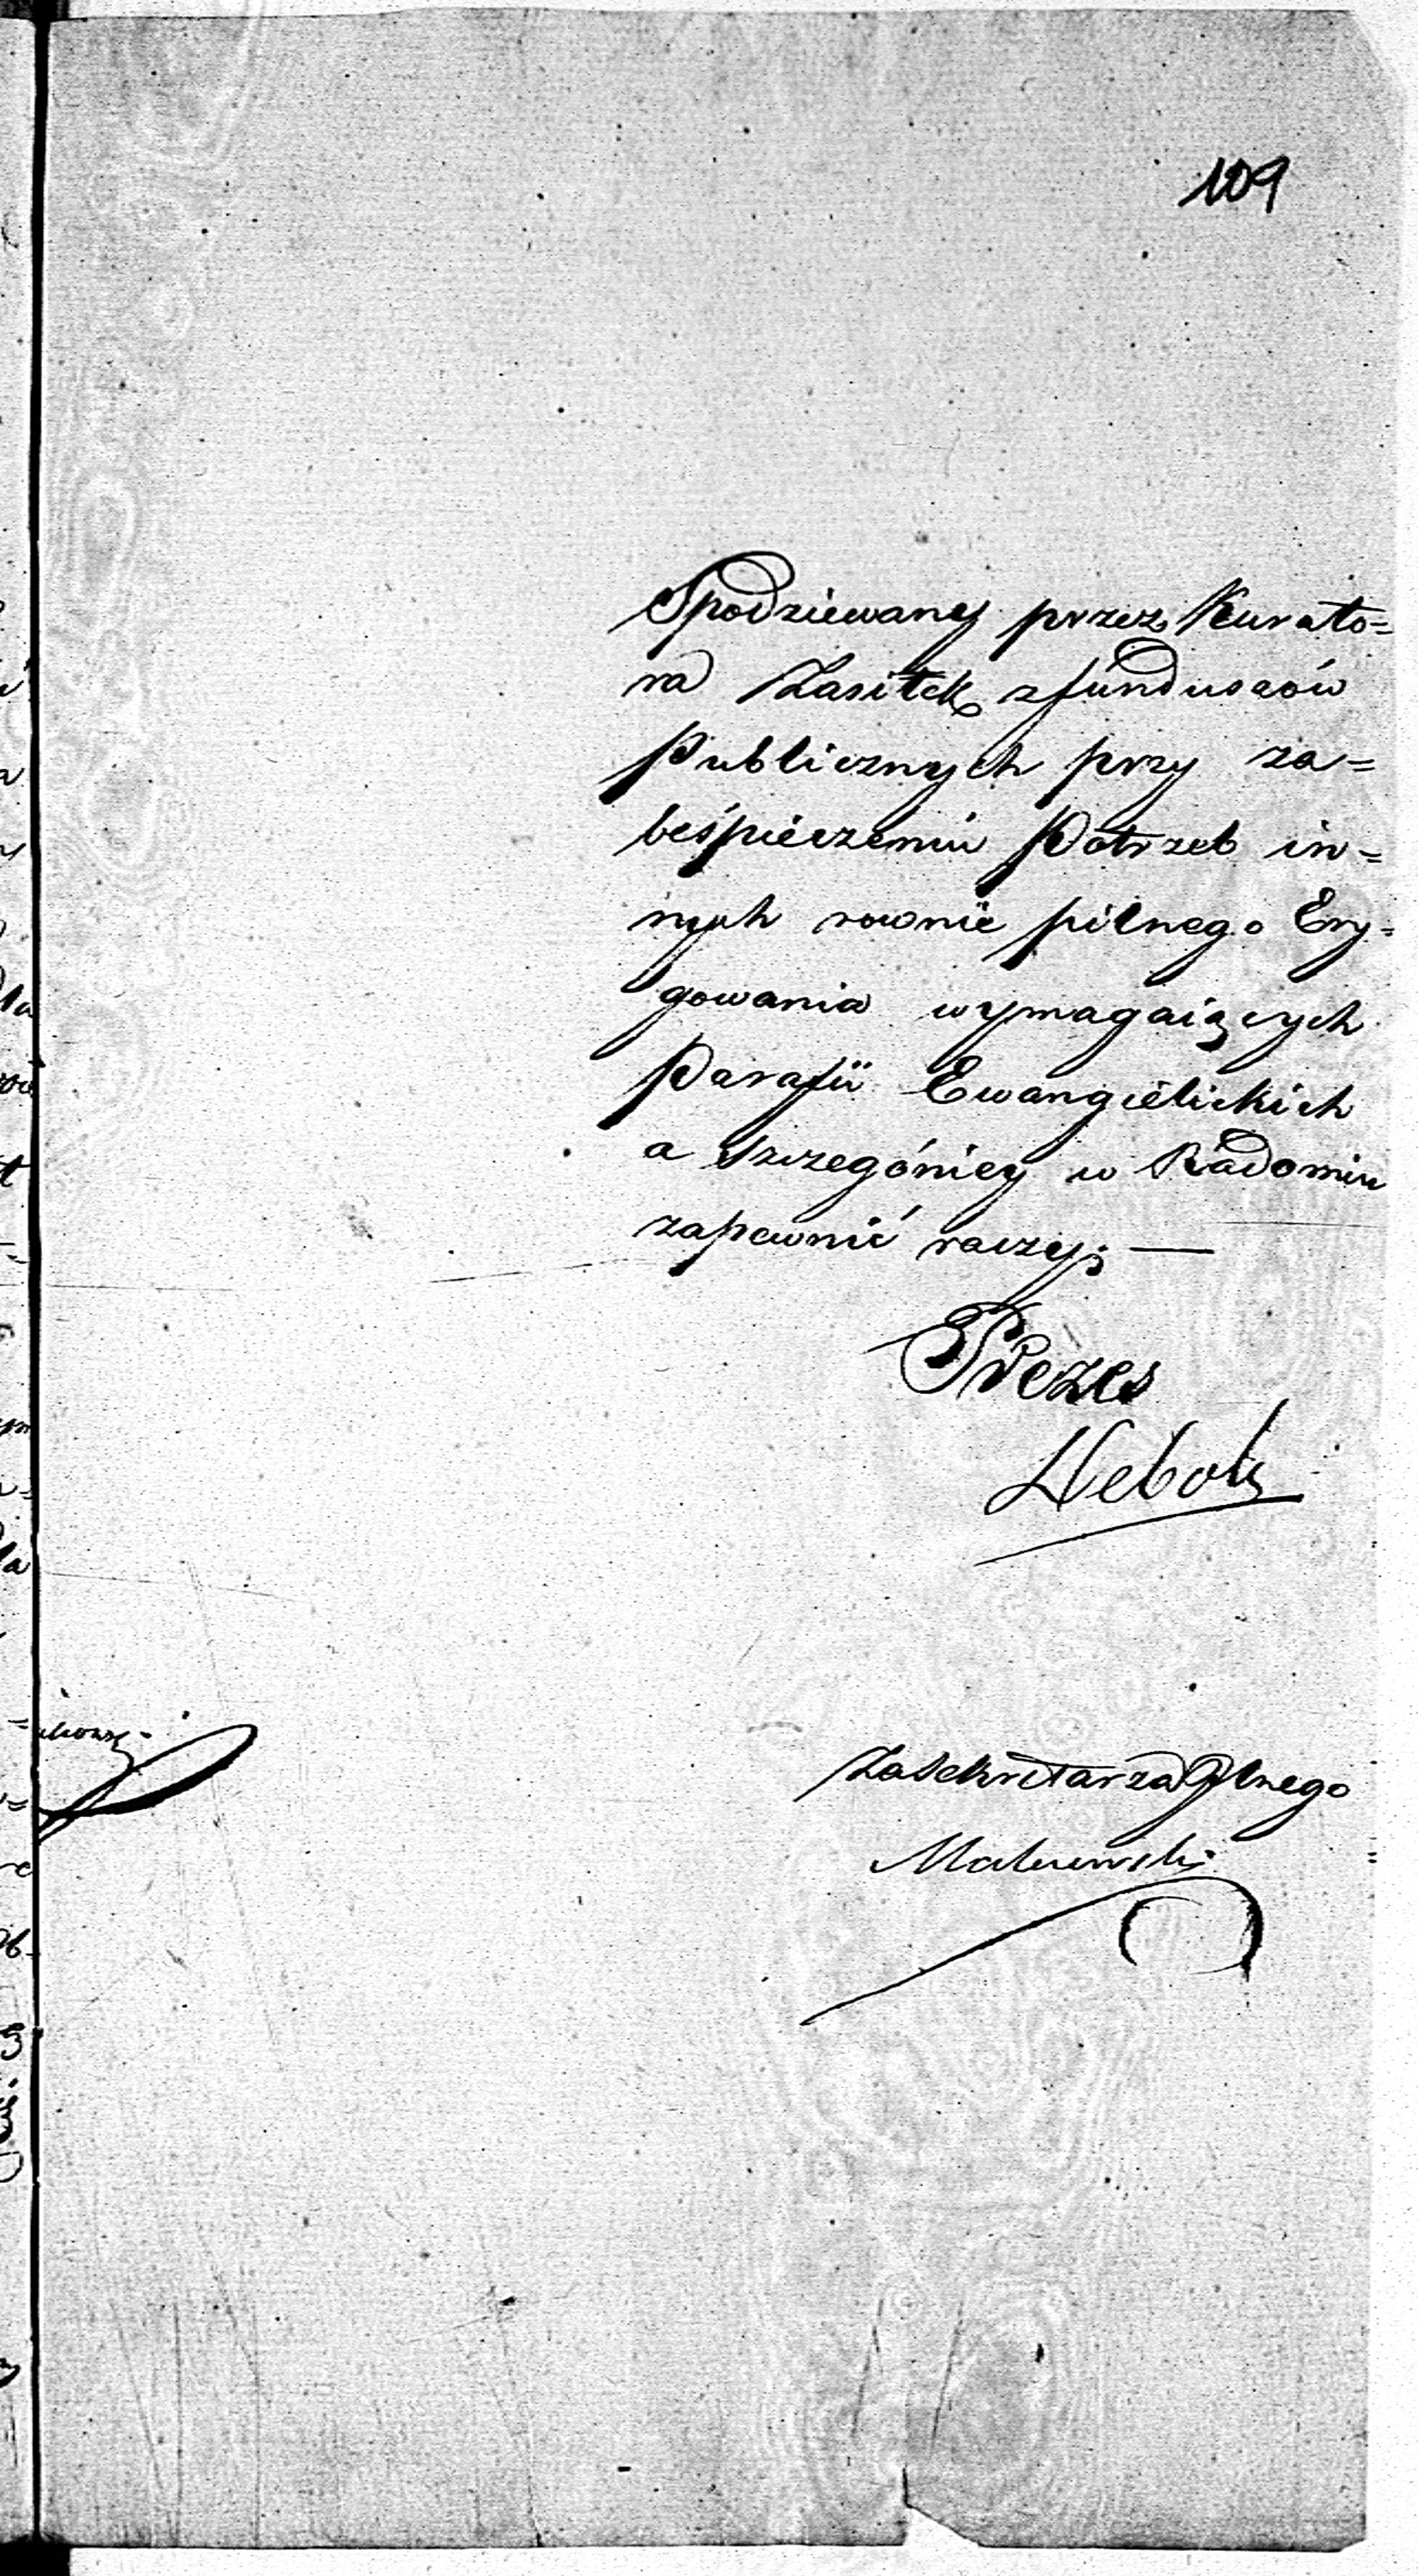 109
Spodziewany przez Kurato=
ra Zasiłek z funduszów
Publicznych przy za=
beśpieczeniu Potrzeb in=
nych rownie pilnego Ery=
gowania wymagaiących
Parafii Ewangielickich
a szczegóniey w Radomiu
zapewnić raczy; —
Prezes
Za Sekretarza Glnego